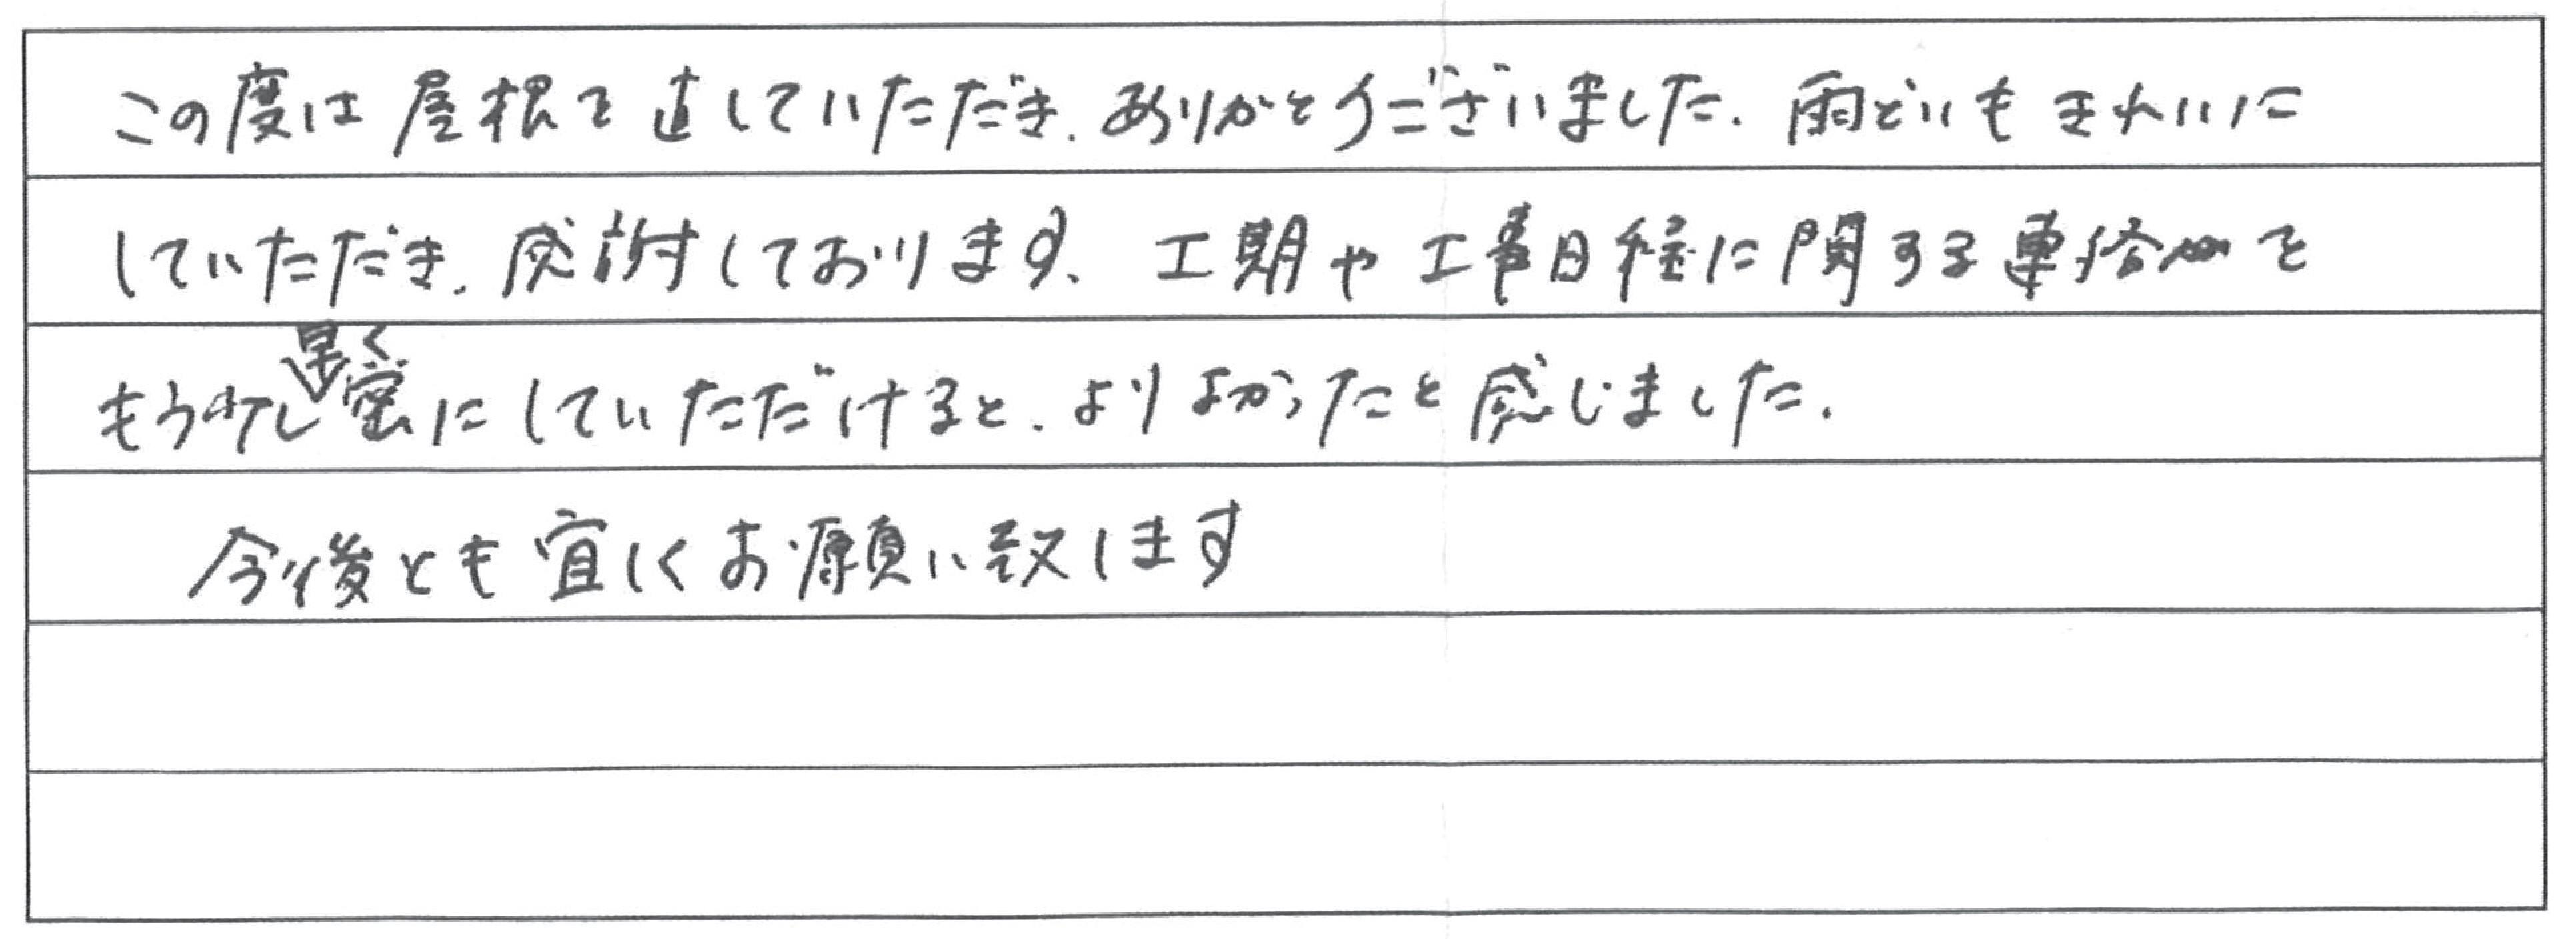 この度は屋根を直していただき、ありがとうございました。雨どいもきれいに
していただき、感謝しております。工期や工事日程に関する連絡を
もう少し早く密にしていただけると、よりよかったと感じました。
今後とも宜しくお願い致します